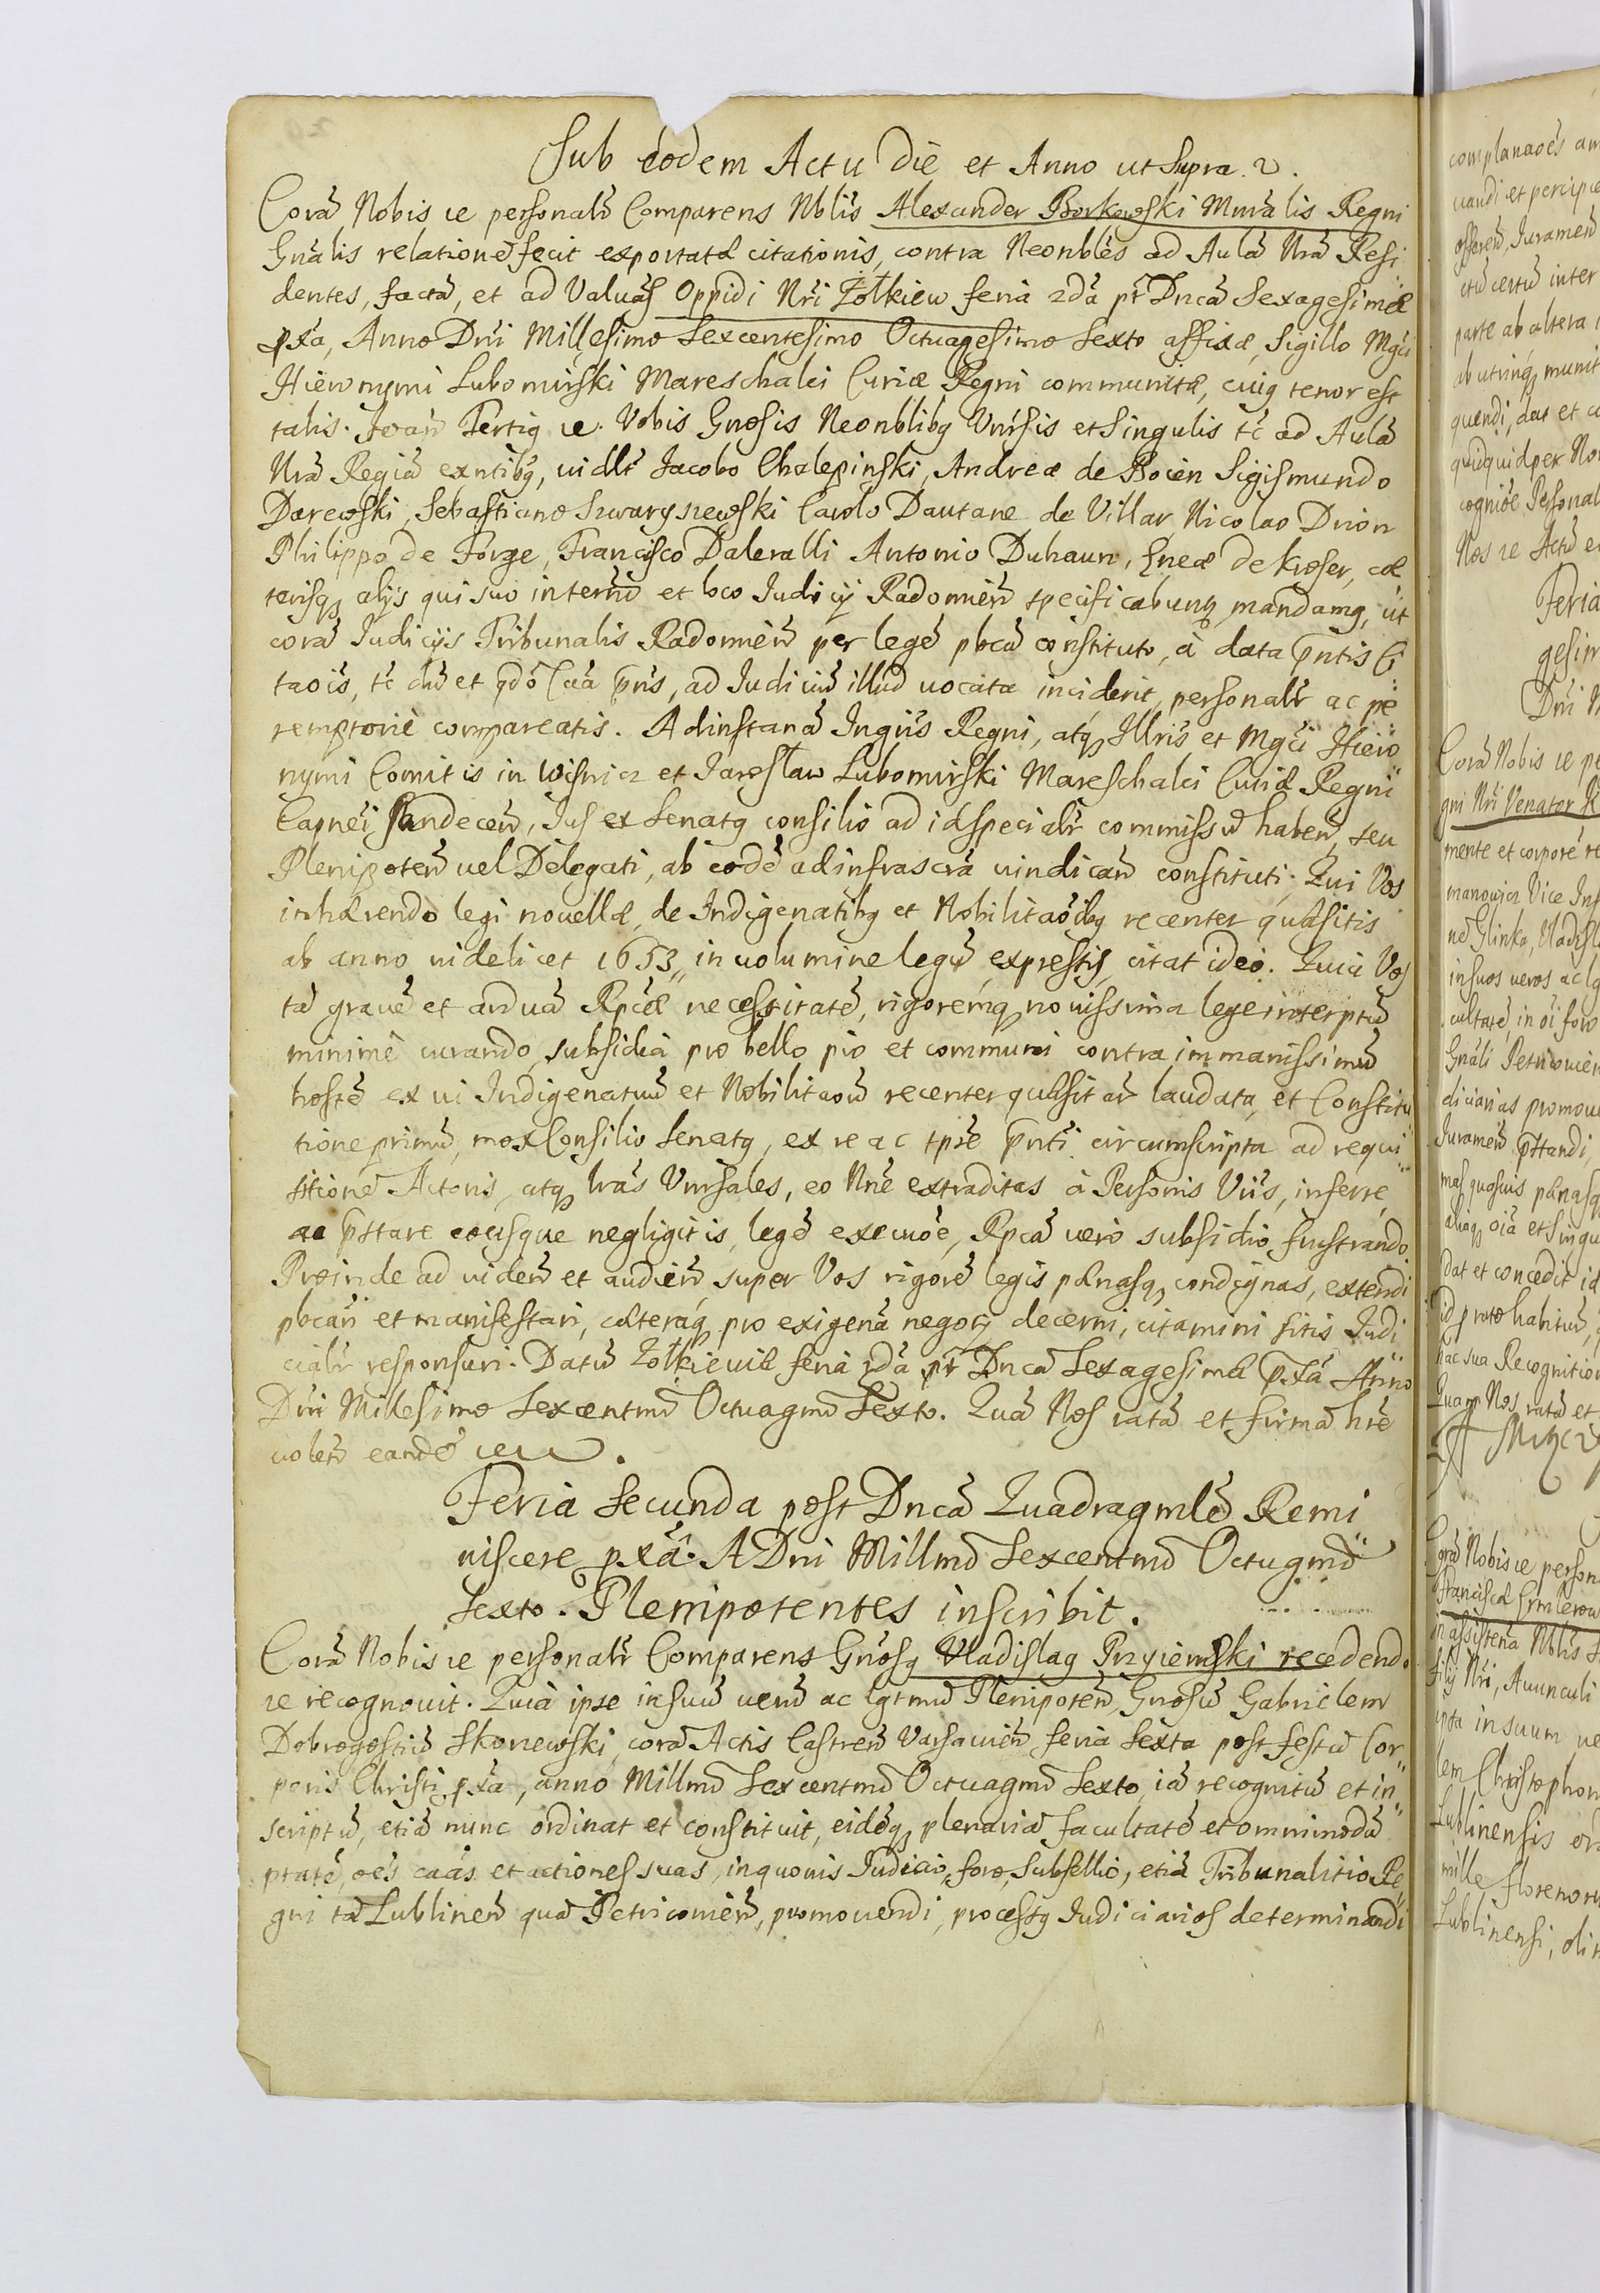 Sub eodem Actu die et Anno ut Supra.
Corã Nobis ie personalr̃ Comparens Nblis̃ Alexander Borkowski Mnrãlis Regni
Gnãlis relationẽ fecit exportatæ citationis, contra Neonblẽs ad Aulã Nrã Resi
dentes, factã, et ad Valuas Oppidi Nrĩ Zołkiew feria 2dã pt̃ Dncã Sexagesimæ
pxã, Anno Dnĩ Millesimo Sexcentesimo Octuagesimo Sexto affixæ, Sigillo Mgcĩ
Hieronymi Lubomirski Mareschalci Curiæ Regni communitæ, cuiq tenor est
talis. Ioañ Tertiq ie. Vobis Gnosis Neonblibq Vnĩrsis et Singulis tc̃ ad Aulã
Nrã Regiã exntibq, uidlt̃ Jacobo Chalepinski, Andreæ de Bocen Sigismundo
Darewski, Sebastiano Szwaryszewski Carolo Dautane de Villar Nicolao Drion
Philippo de Forge, Francisco Daleralli Antonio Duhaun, Eneæ de Kroser, cæ
terisq alys qui suo in termĩo et loco Iudicij Radomieñ specificabunt̃ mandamq, ut
corã Iudicijs Tribunalis Radomieñ per legẽ pbcã constituto, à data pñtis Ci
taois̃, tc̃ cũ et qdõ Caã pñs, ad Iudiciũ illud uocata inciderit, personalr̃ ac pe
remptoriè compareatis. Ad instanã Ingiis̃ Regni, atq Illris̃ et Mgcĩ Hiero
nymi Comitis in Wisnicz et Jaroslaw Lubomirski Mareschalci Curiæ Regni
Capnei Sandeceñ, Jus ex Senatq consilio ad id specialr̃ commissũ habeñ, seu
Plenipoteñ uel Delegati, ab eodẽ ad infrascrã uindicañ constituti. Qui Vos
inhærendo legi nouellæ, de Indigenatibq et Nobilitaoĩbq recenter quæsitis
ab anno uidelicet 1653, in uolumine legũ expressis, citat ideo. Quia Vos
tã grauẽ et arduã Rpcæ necessitatẽ, rigoremq nouissima lege interptũ
minimè curando, subsidia pro bello pio et communi contra immanissimũ
hostẽ ex ui Indigenatuũ et Nobilitaoũ recenter quæsitar̃ laudata, et Constitu
tione primũ, mox Consilio Senatq, ex re ac tpr̃e pñti circumscripta ad requi
sitionẽ Actoris, atq lrãs Vnirsales, eo Nnẽ extraditas à Personis Vris̃, inferre,
ac pr̃stare eousque negligitis, legẽ execuoẽ, Rpcã uero subsidio frustrando.
Proinde ad uideñ et audieñ, super Vos rigorẽ legis pænasq condignas, extendi
pbcari et manifestari, cæteraq pro exigenã negotij decerni, citamini sitis Iudi
cialr̃ responsuri. Datũ Zołkieuiæ feria 2dã pt̃ Dncã Sexagesimæ pxã Anno
Dnĩ Millesimo Sexcentmõ Octuagmõ Sexto. Quã Nos ratã et firmã hrẽ
uoleñ eandẽ
Feria Secunda post Dncã Quadragmlẽ Remi
niscere pxã. A Dnĩ Millmõ Sexcentmõ Octugmõ
Sexto. Plenipotentes inscribit.
Corã Nobis ie personalr̃ Comparens Gnõsq Vladislaq Przyiemski recedendo
ie recognouit. Quia ipse in suũ uerũ ac lgtmũ Plenipoteñ, Gnosũ Gabrielem
Dobrogostiũ Skonewski, corã Actis Castreñ Varsauieñ feria Sexta post festũ Cor
poris Christi pxã, anno Millmõ Sexcentmõ Octuagmõ Sexto iã recognitũ et in
scriptũ, etiã nunc ordinat et constituit, eidẽq plenariã facultatẽ et omnimodã
ptatẽ, oẽs caãs et actiones suas, in quouis Iudicio, foro, Subsellio, etiã Tribunalitio Re
gni tã Lublineñ quã Petricouieñ, promouendi, processq Iudiciarios determinandi
complanaoẽs am
uandi et percipie
offereñ, Iurameñ
ctũ certũ inter
parte ab altera
ab utrinq munit
quendi, dat et co
quidquid per No
cognioẽ Personal
Nos ie Actũ e
Feria
gesim
Dnĩ M
Corã Nobis ie pe
gni Nrĩ Venator
mente et corpore re
manowicz Vice Ins
nõ Glinka, Vladisl
in suos ueros ac lg
cultatẽ, in oĩ foro
Gnãli Petricouieñ
diciarias promou
Iurameñ pr̃standi,
mas quosuis pænasq
aliaq oiã et singu
dat et concedit id
id p rato habitur̃,
hac sua Recognition
Quam Nos ratã et
Corã Nobis ie person
Francisca
in assistenã Nblis̃
filij Nrĩ, Auunculi
ipsa in suum ue
lem Christophor
Lublinensis or
mille florenor
Lublinensi, oli